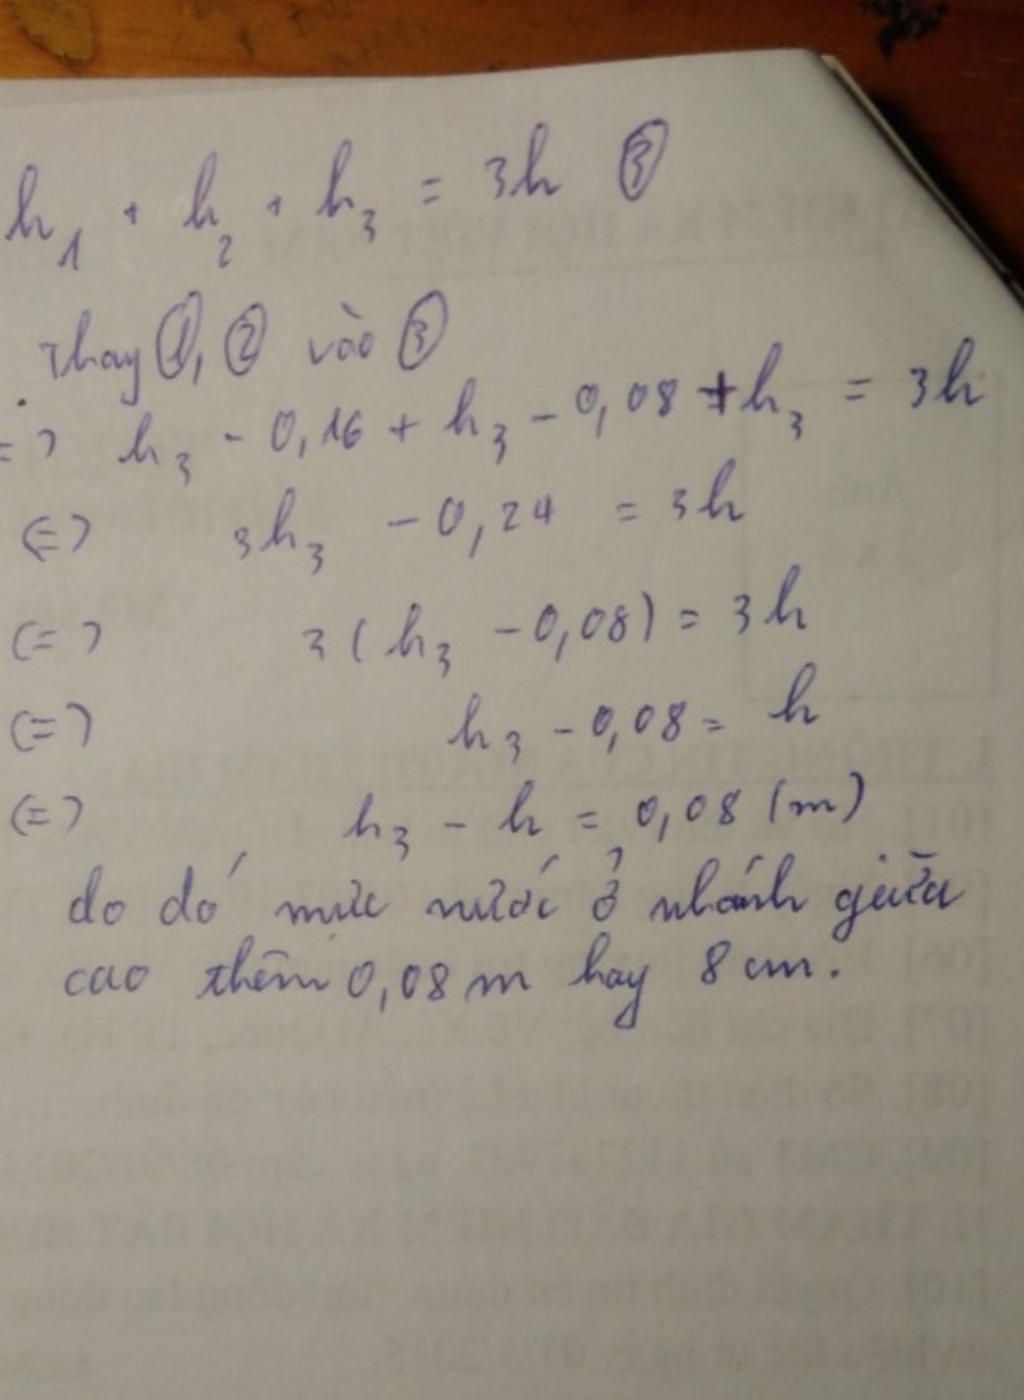 h₁ + h₂ + h₃ = 3h ③
Thay ①, ② vào ③
=> h₃ - 0,16 + h₃ - 0,08 + h₃ = 3h
<=> 3h₃ - 0,24 = 3h
<=> 3(h₃ - 0,08) = 3h
<=> h₃ - 0,08 = h
<=> h₃ - h = 0,08 (m)
do đó mực nước ở nhánh giữa
cao thêm 0,08 m hay 8 cm.